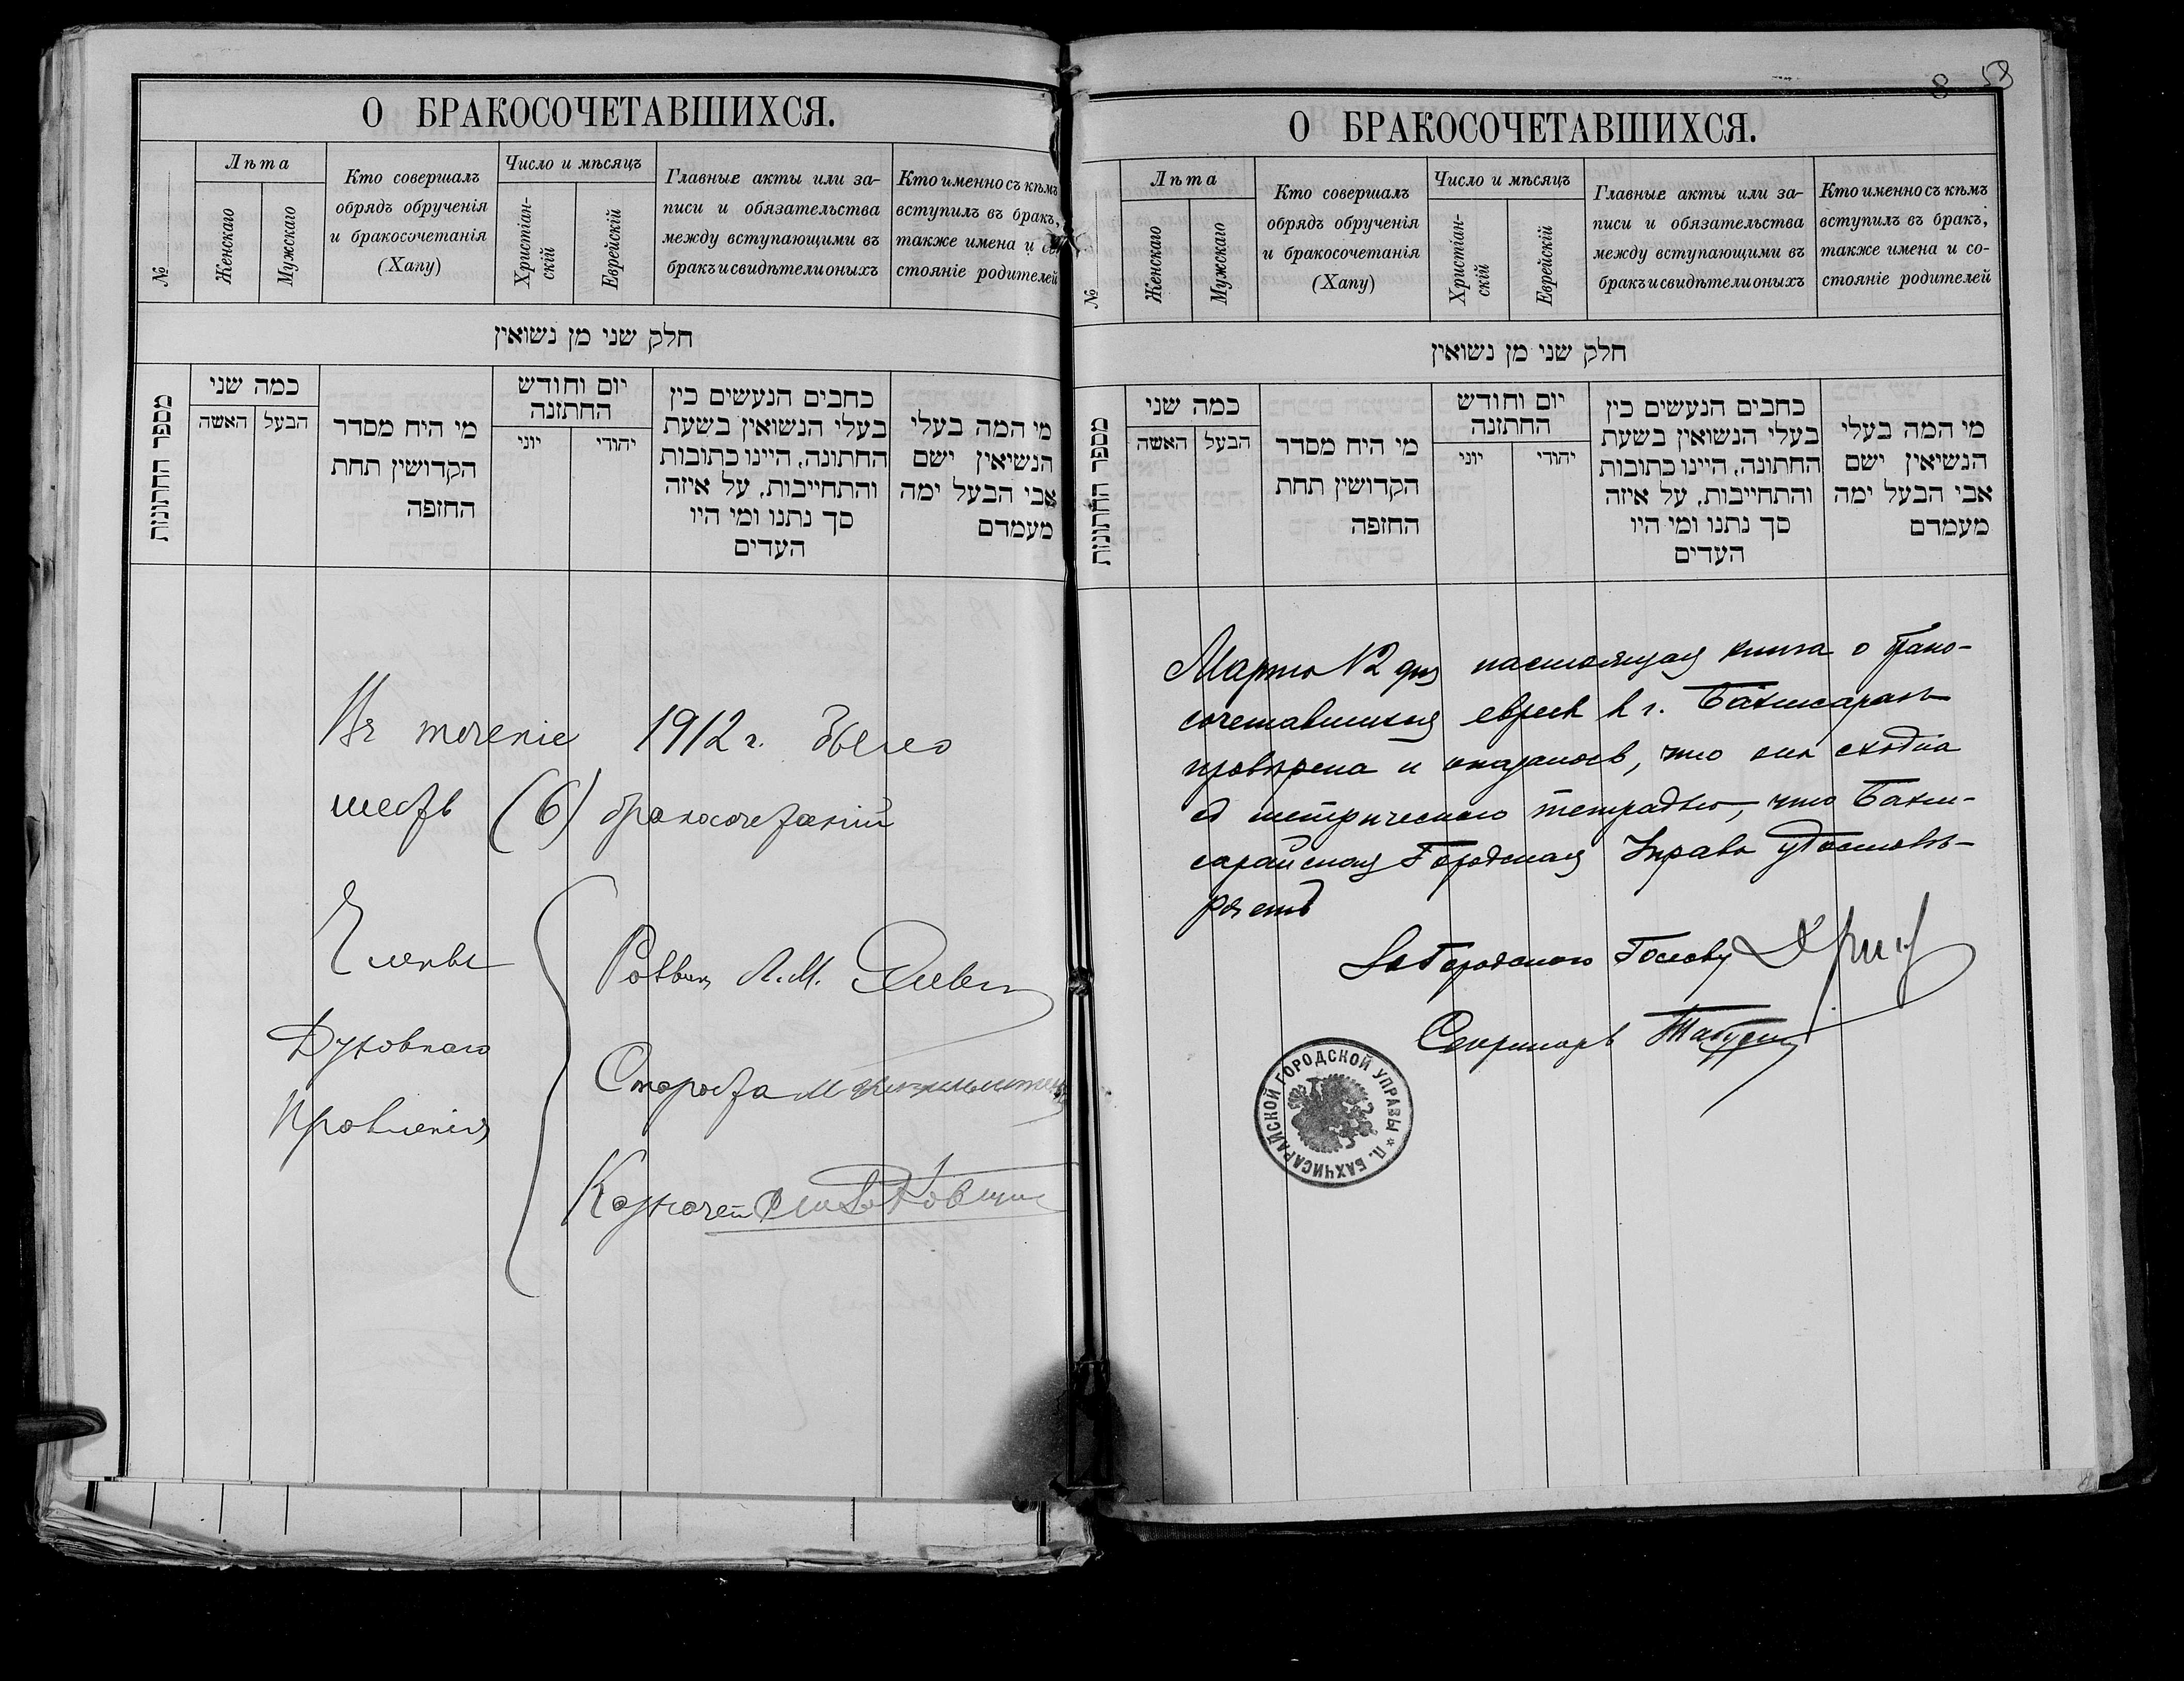 О БРАКОСОЧЕТАВШИХСЯ.
№
Лѣта
Женскаго
Мужскаго
Кто совершалъ
обрядъ обрученія
и бракосочетанія
(Хапу)
Число и мѣсяцъ
Христіан-
скій
Еврейскій
Главные акты или за-
писи и обязательства
между вступающими въ
бракъ и свидѣтели оныхъ
Кто именно съ кѣмъ
вступилъ въ бракъ,
также имена и со-
стояніе родителей
חלק שני מן נשואין
מספר החתונות
כמה שני
האשה
הבעל
מי היח מסדר
הקדושין תחת
החזפה
יום וחודש
החתזנה
יוני
יהודי
כחבים הנעשים כין
בעלי הנשואין בשעת
החתונה, היינו כתובות
והתחייבות, על איזה
סך נתנו ומי היו
העדים
מי המה בעלי
הנשיאין ישם
אבי הבעל ימה
מעמדם
Въ теченіе 1912 г. было
шесть (6) бракосочетаній
Члены
Духовнаго
Правленія
Раввин Л.М.
Староста
Казначей
8 58
О БРАКОСОЧЕТАВШИХСЯ.
№
Лѣта
Женскаго
Мужскаго
Кто совершалъ
обрядъ обрученія
и бракосочетанія
(Хапу)
Число и мѣсяцъ
Христіан-
скій
Еврейскій
Главные акты или за-
писи и обязательства
между вступающими въ
бракъ и свидѣтели оныхъ
Кто именно съ кѣмъ
вступилъ въ бракъ,
также имена и со-
стояніе родителей
חלק שני מן נשואין
מספר החתונות
כמה שני
האשה
הבעל
מי היח מסדר
הקדושין תחת
החזפה
יום וחודש
החתזנה
יוני
יהודי
כחבים הנעשים כין
בעלי הנשואין בשעת
החתונה, היינו כתובות
והתחייבות, על איזה
סך נתנו ומי היו
העדים
מי המה בעלי
הנשיאין ישם
אבי הבעל ימה
מעמדם
Марта 12 дня настоящая книга о брако-
сочетавшихся евреев в г. Бахчисараѣ
провѣрена и оказалось, что она сходна
съ метрическою тетрадью, что Бахчи-
сарайская Городская Управа удостовѣ-
ряетъ
За Городского Голову
Секретарь
П. БАХЧИСАРАЙСКОЙ ГОРОДСКОЙ УПРАВЫ